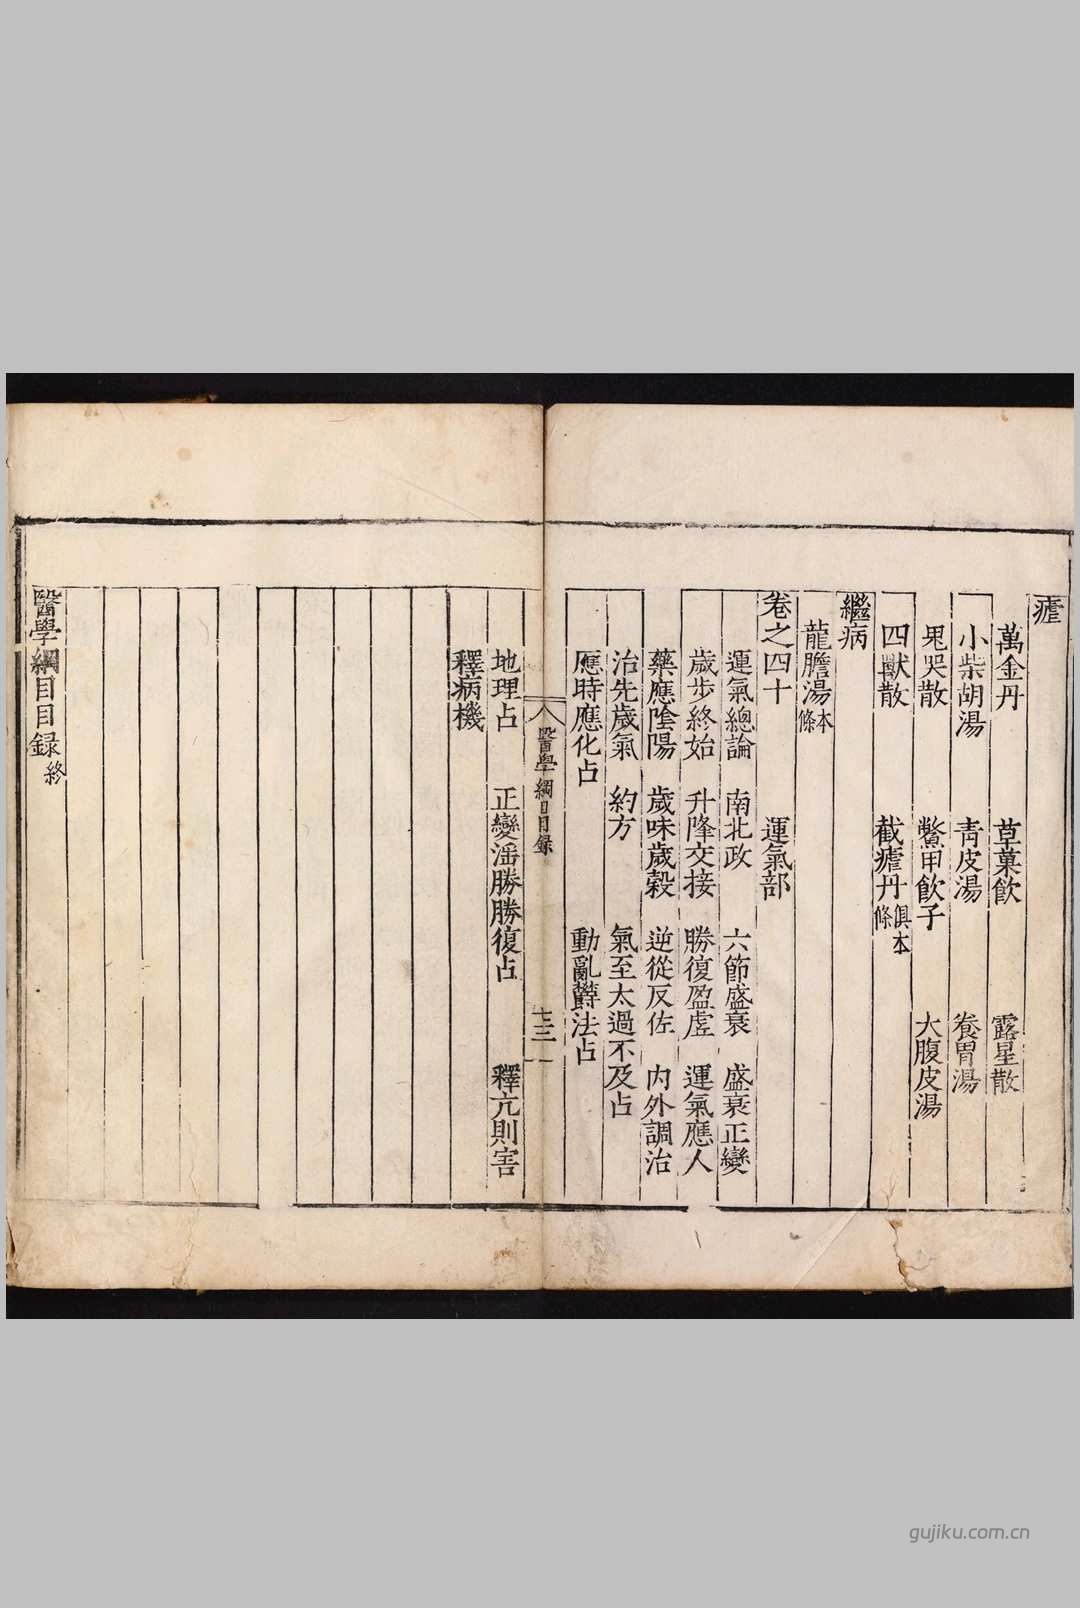 瘧
萬金丹　草菓飲　露星散
小柴胡湯　青皮湯　養胃湯
鬼哭散　鱉甲飲子　大腹皮湯
四獸散　截瘧丹俱本條
繼病
龍膽湯本條
卷之四十　運氣部
運氣總論　南北政　六節盛衰　盛衰正變
歲步終始　升降交接　勝復盈虛　運氣應人
藥應陰陽　歲味歲穀　逆從反佐　內外調治
治先歲氣　約方　氣至太過不及占
應時應化占　動亂欝法占
醫學綱目目録　七三
地理占　正變淫勝勝復占　釋亢則害
釋病機
醫學綱目目録終
gujiku.com.cn